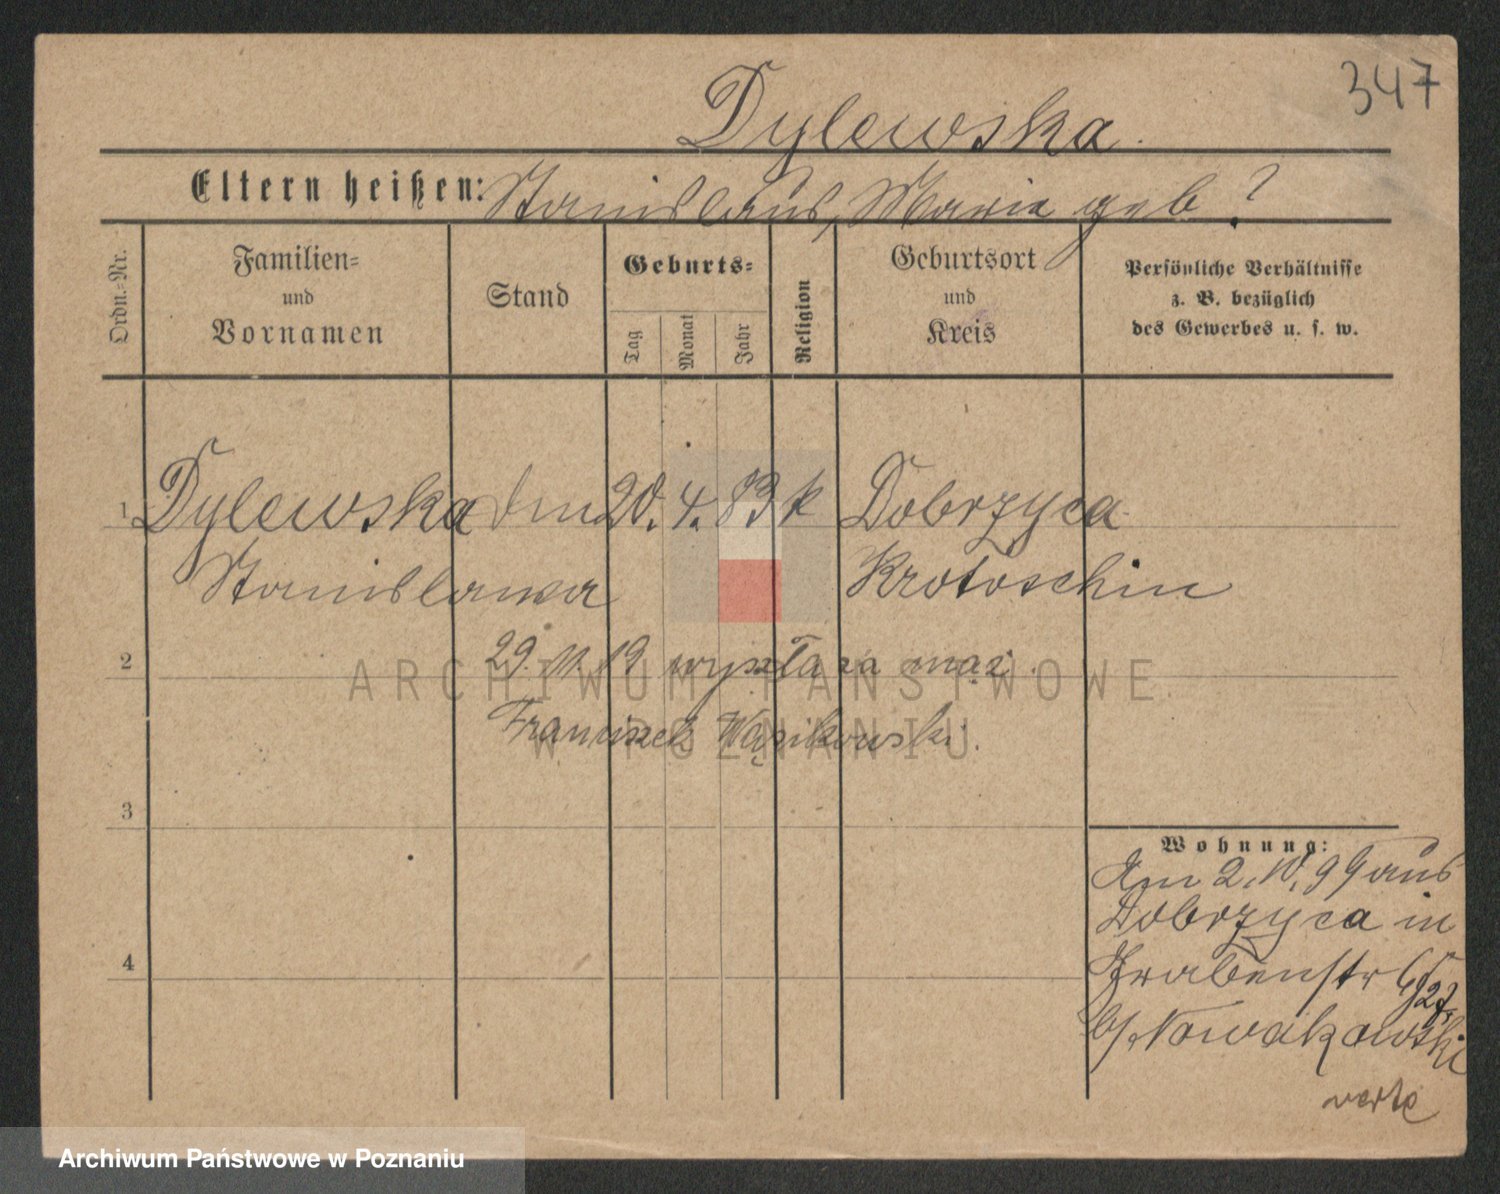 347
Dylewska.
Eltern heißen: Stanislaus, Marie geb. ?
Ordn.-Nr.
Familien- und Vornamen
Stand
Geburts-
Tag
Monat
Jahr
Religion
Geburtsort und Kreis
Persönliche Verhältnisse z. B. bezüglich des Gewerbes u. s. w.
1 Dylewska 20. 4. 83 k Dobrzyca
Stanislawa Krotoschin
2 29. 11. 19 wyszła za mąż
Franciszek Wąsikowski.
3
Wohnung:
Am 2. 10. 99 aus
Dobrzyca in
4
Grabenstr
b/ Nowakowski
verte
ARCHIWUM PAŃSTWOWE
W POZNANIU
Archiwum Państwowe w Poznaniu